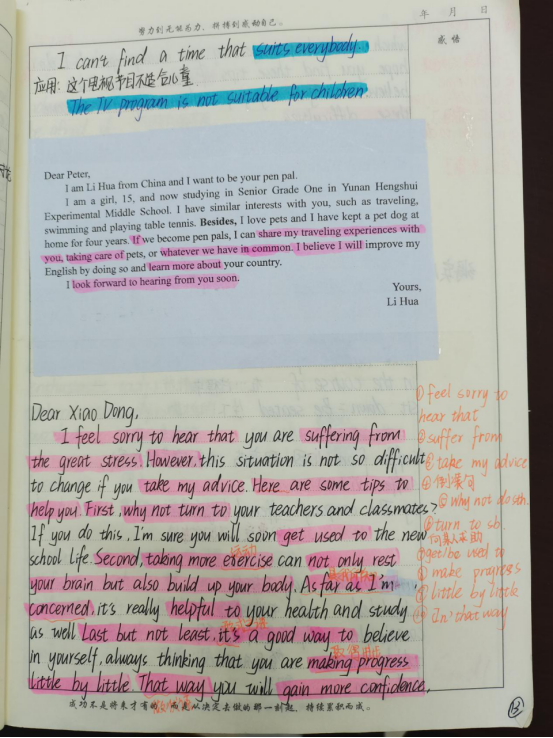 努力到无能为力，拼搏到感动自己。
年 月 日
感悟
I can't find a time that suits everybody.
应用：这个电视节目不适合儿童
The TV program is not suitable for children.
Dear Peter,
I am Li Hua from China and I want to be your pen pal.
I am a girl, 15, and now studying in Senior Grade One in Yunan Hengshui
Experimental Middle School. I have similar interests with you, such as traveling,
swimming and playing table tennis. Besides, I love pets and I have kept a pet dog at
home for four years. If we become pen pals, I can share my traveling experiences with
you, taking care of pets, or whatever we have in common. I believe I will improve my
English by doing so and learn more about your country.
I look forward to hearing from you soon.
Yours,
Li Hua
Dear Xiao Dong,
I feel sorry to hear that you are suffering from
the great stress. However, this situation is not so difficult
to change if you take my advice. Here are some tips to
help you. First, why not turn to your teachers and classmates?
If you do this, I'm sure you will soon get used to the new
school life. Second, taking more exercise can not only rest
运动
your brain but also build up your body. As far as I'm
concerned, it's really helpful to your health and study
as well. Last but not least, it's a good way to believe
in yourself, always thinking that you are making progress
little by little. That way you will gain more confidence.
①feel sorry to
hear that
②suffer from
③take my advice
④倒装句
⑤why not do sth.
⑥turn to sb.
向某人求助
⑦get/be used to
⑧make progress
⑨little by little
⑩(In) that way
成功不是将来才有的，而是从决定去做的那一刻起，持续累积而成。